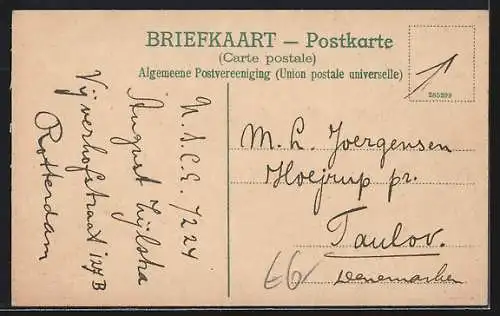 BRIEFKAART — Postkarte
(Carte postale)
Algemeene Postvereeniging (Union postale universelle)
285299
N.I.C.E. 7224
August Zijlstra
Vijverhofstraat 127 B
Rotterdam
M. L. Joergensen
Hoejrup pr.
Taulov.
Denemarken
66